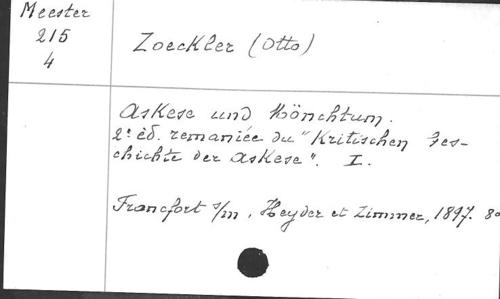 Meester
215
4
Zoeckler (Otto)
Askese und Mönchtum.
2e éd. remaniée du "Kritischen Ges-
chichte der Askese". I.
Francfort s/m, Heyder et Zimmer, 1897. 8o